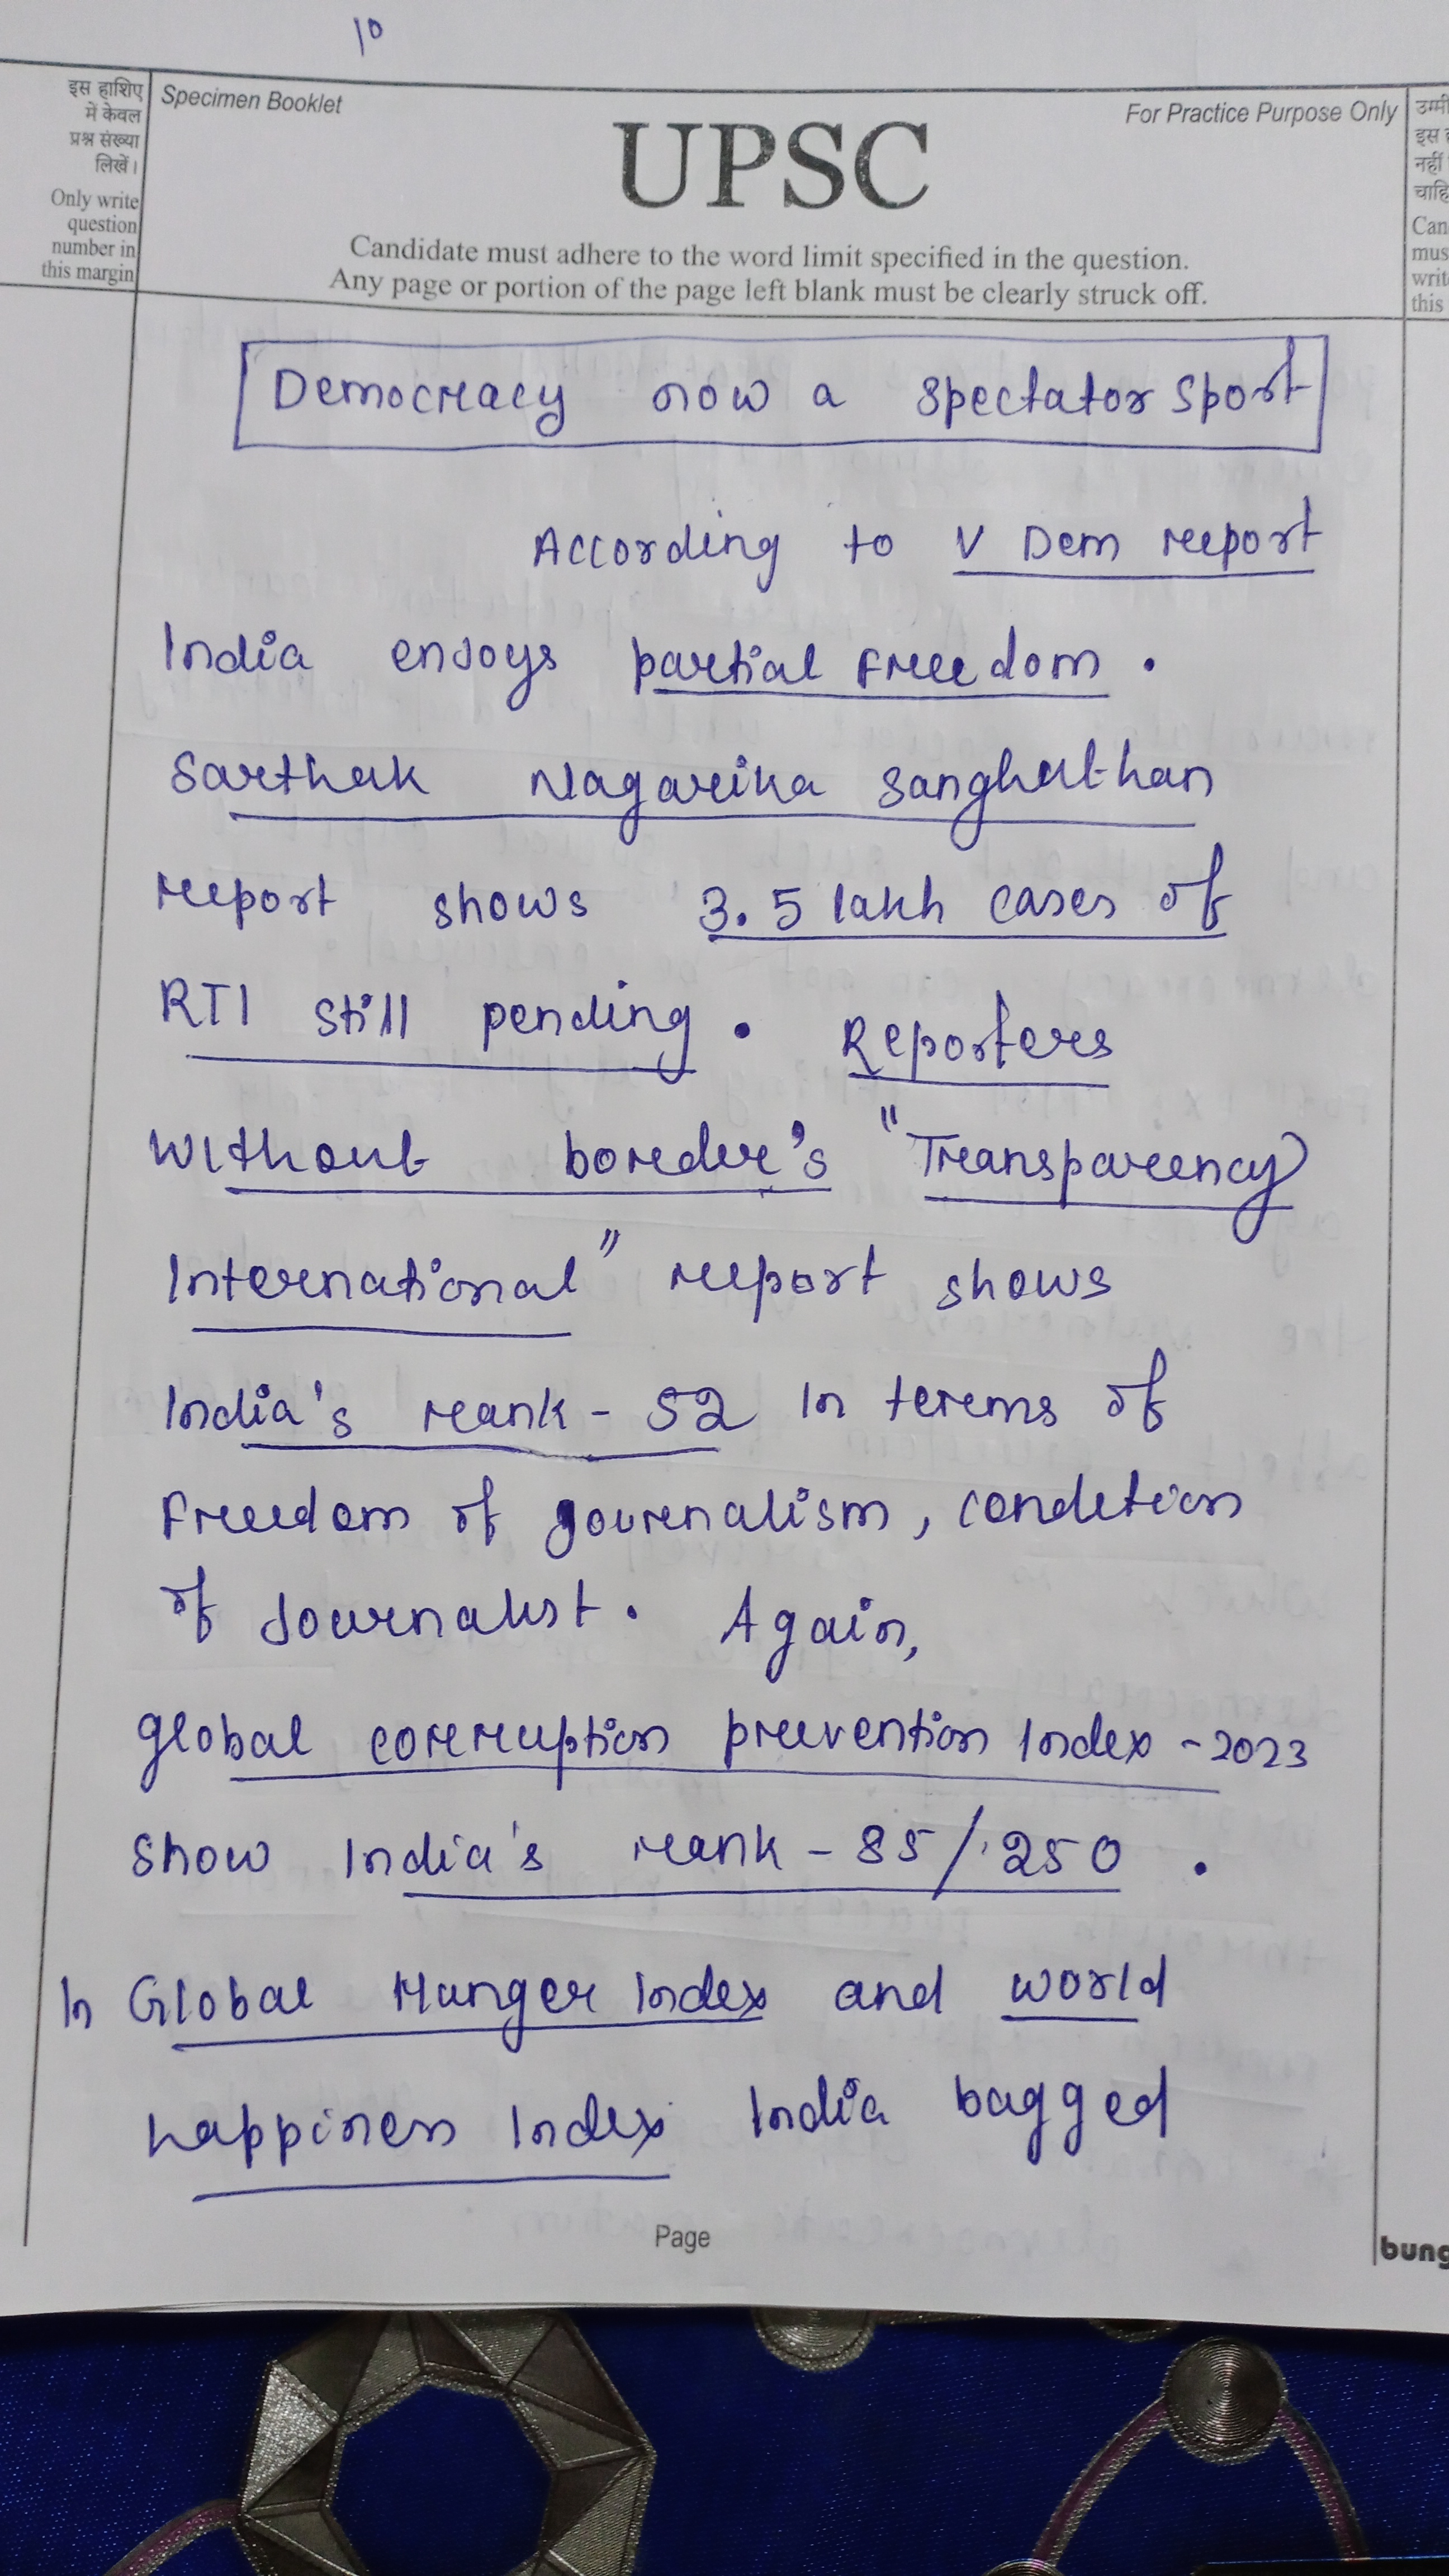 10
इस हाशिए
में केवल
प्रश्न संख्या
लिखें।
Only write
question
number in
this margin
Specimen Booklet
For Practice Purpose Only
UPSC
Candidate must adhere to the word limit specified in the question.
Any page or portion of the page left blank must be clearly struck off.
इस
नहीं
Can
mus
writ
this
Democracy now a spectator sport
According to V Dem report
India enjoys partial freedom.
Sarthak Nagarika Sanghathan
report shows 3.5 lakh cases of
RTI still pending. Reporters
Without border's "Transparency
International" report shows
India's rank - 52 in terms of
Freedom of journalism, condition
of Journalist. Again,
Global corruption prevention Index - 2023
show India's rank - 85/250.
In Global Hunger Index and world
happiness Index India bagged
Page
bung